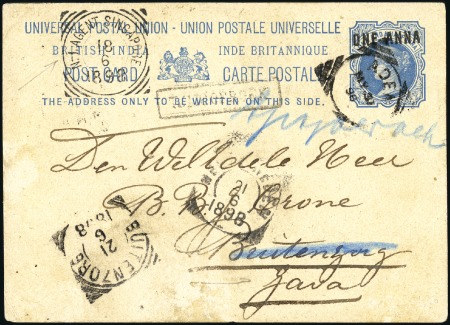 UNIVERSAL POSTAL UNION - UNION POSTALE UNIVERSELLE
BRITISH INDIA INDE BRITANNIQUE
ONE ANNA
POST CARD CARTE POSTALE
THE ADDRESS ONLY TO BE WRITTEN ON THIS SIDE.
SINGAPORE
ADEN
Den Weledele Heer
B. B. Crone
21
6
1898
BUITENZORG
21
6
1898
Buitenzorg
Java